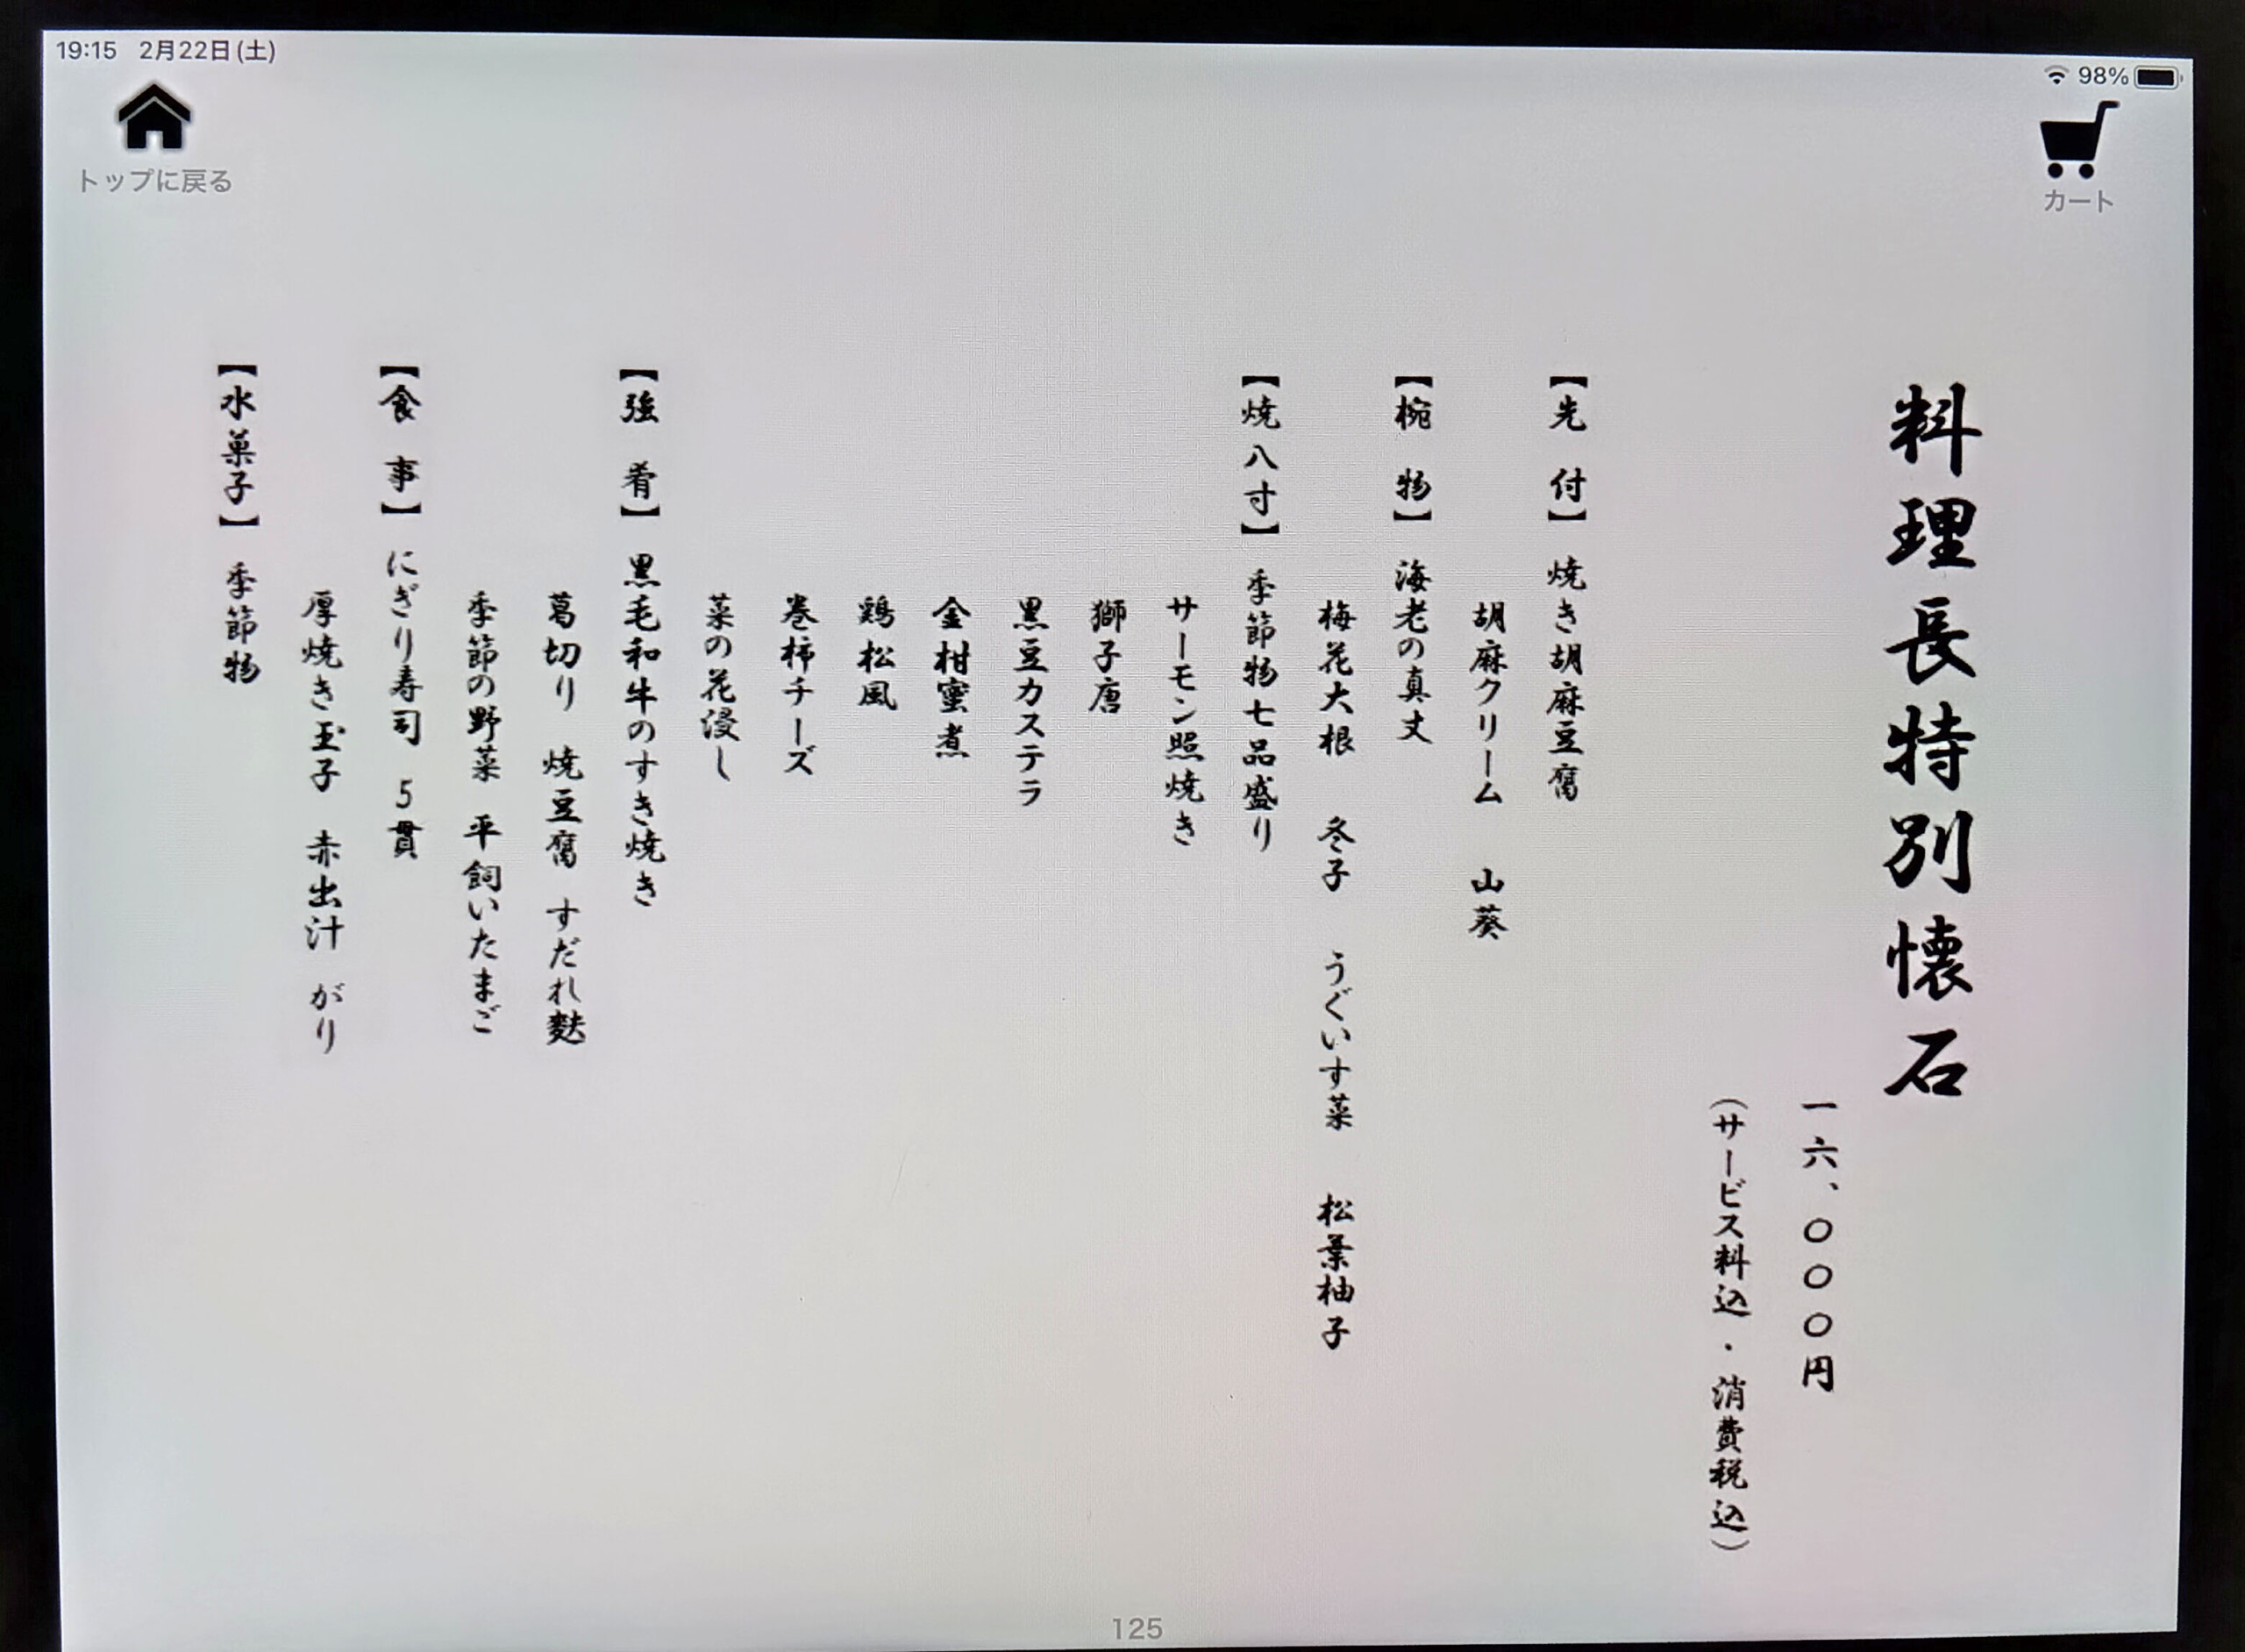 19:15 2月22日(土)
98%
トップに戻る
カート
料理長特別懐石
一六、〇〇〇円
(サービス料込・消費税込)
【先 付】 焼き胡麻豆腐
胡麻クリーム 山葵
【椀 物】 海老の真丈
梅花大根 冬子 うぐいす菜 松葉柚子
【焼八寸】 季節物七品盛り
サーモン照焼き
獅子唐
黒豆カステラ
金柑蜜煮
鶏松風
巻柿チーズ
菜の花浸し
【強 肴】 黒毛和牛のすき焼き
葛切り 焼豆腐 すだれ麩
季節の野菜 平飼いたまご
【食 事】 にぎり寿司 5貫
厚焼き玉子 赤出汁 がり
【水菓子】 季節物
125